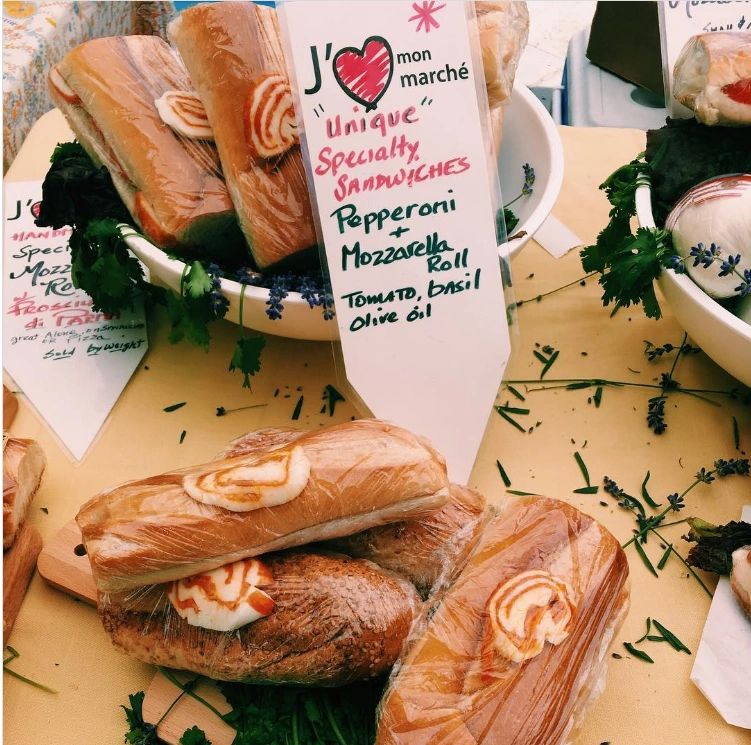 J'
mon
marché
"Unique"
Specialty
SANDWICHES
Pepperoni
+
Mozzarella
Roll
TOMATO, basil
Olive oil
J'
HANDM
Speci
Mozz
Ro
Prosciu
di Parm
great Alone, on Sandwiches
OR Pizza
Sold by Weight